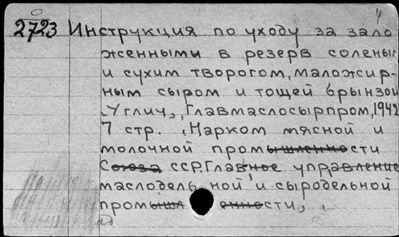 2723 Инструкция по уходу за зало
женными в резерв соленым
и сухим творогом, маложир-
ным сыром и тощей брынзой
Углич, Главмаслосырпром, 1942
7 стр. (Нарком мясной и
молочной промышленности
Союза ССР. Главное управление
маслодельной и сыродельной
промышленности,